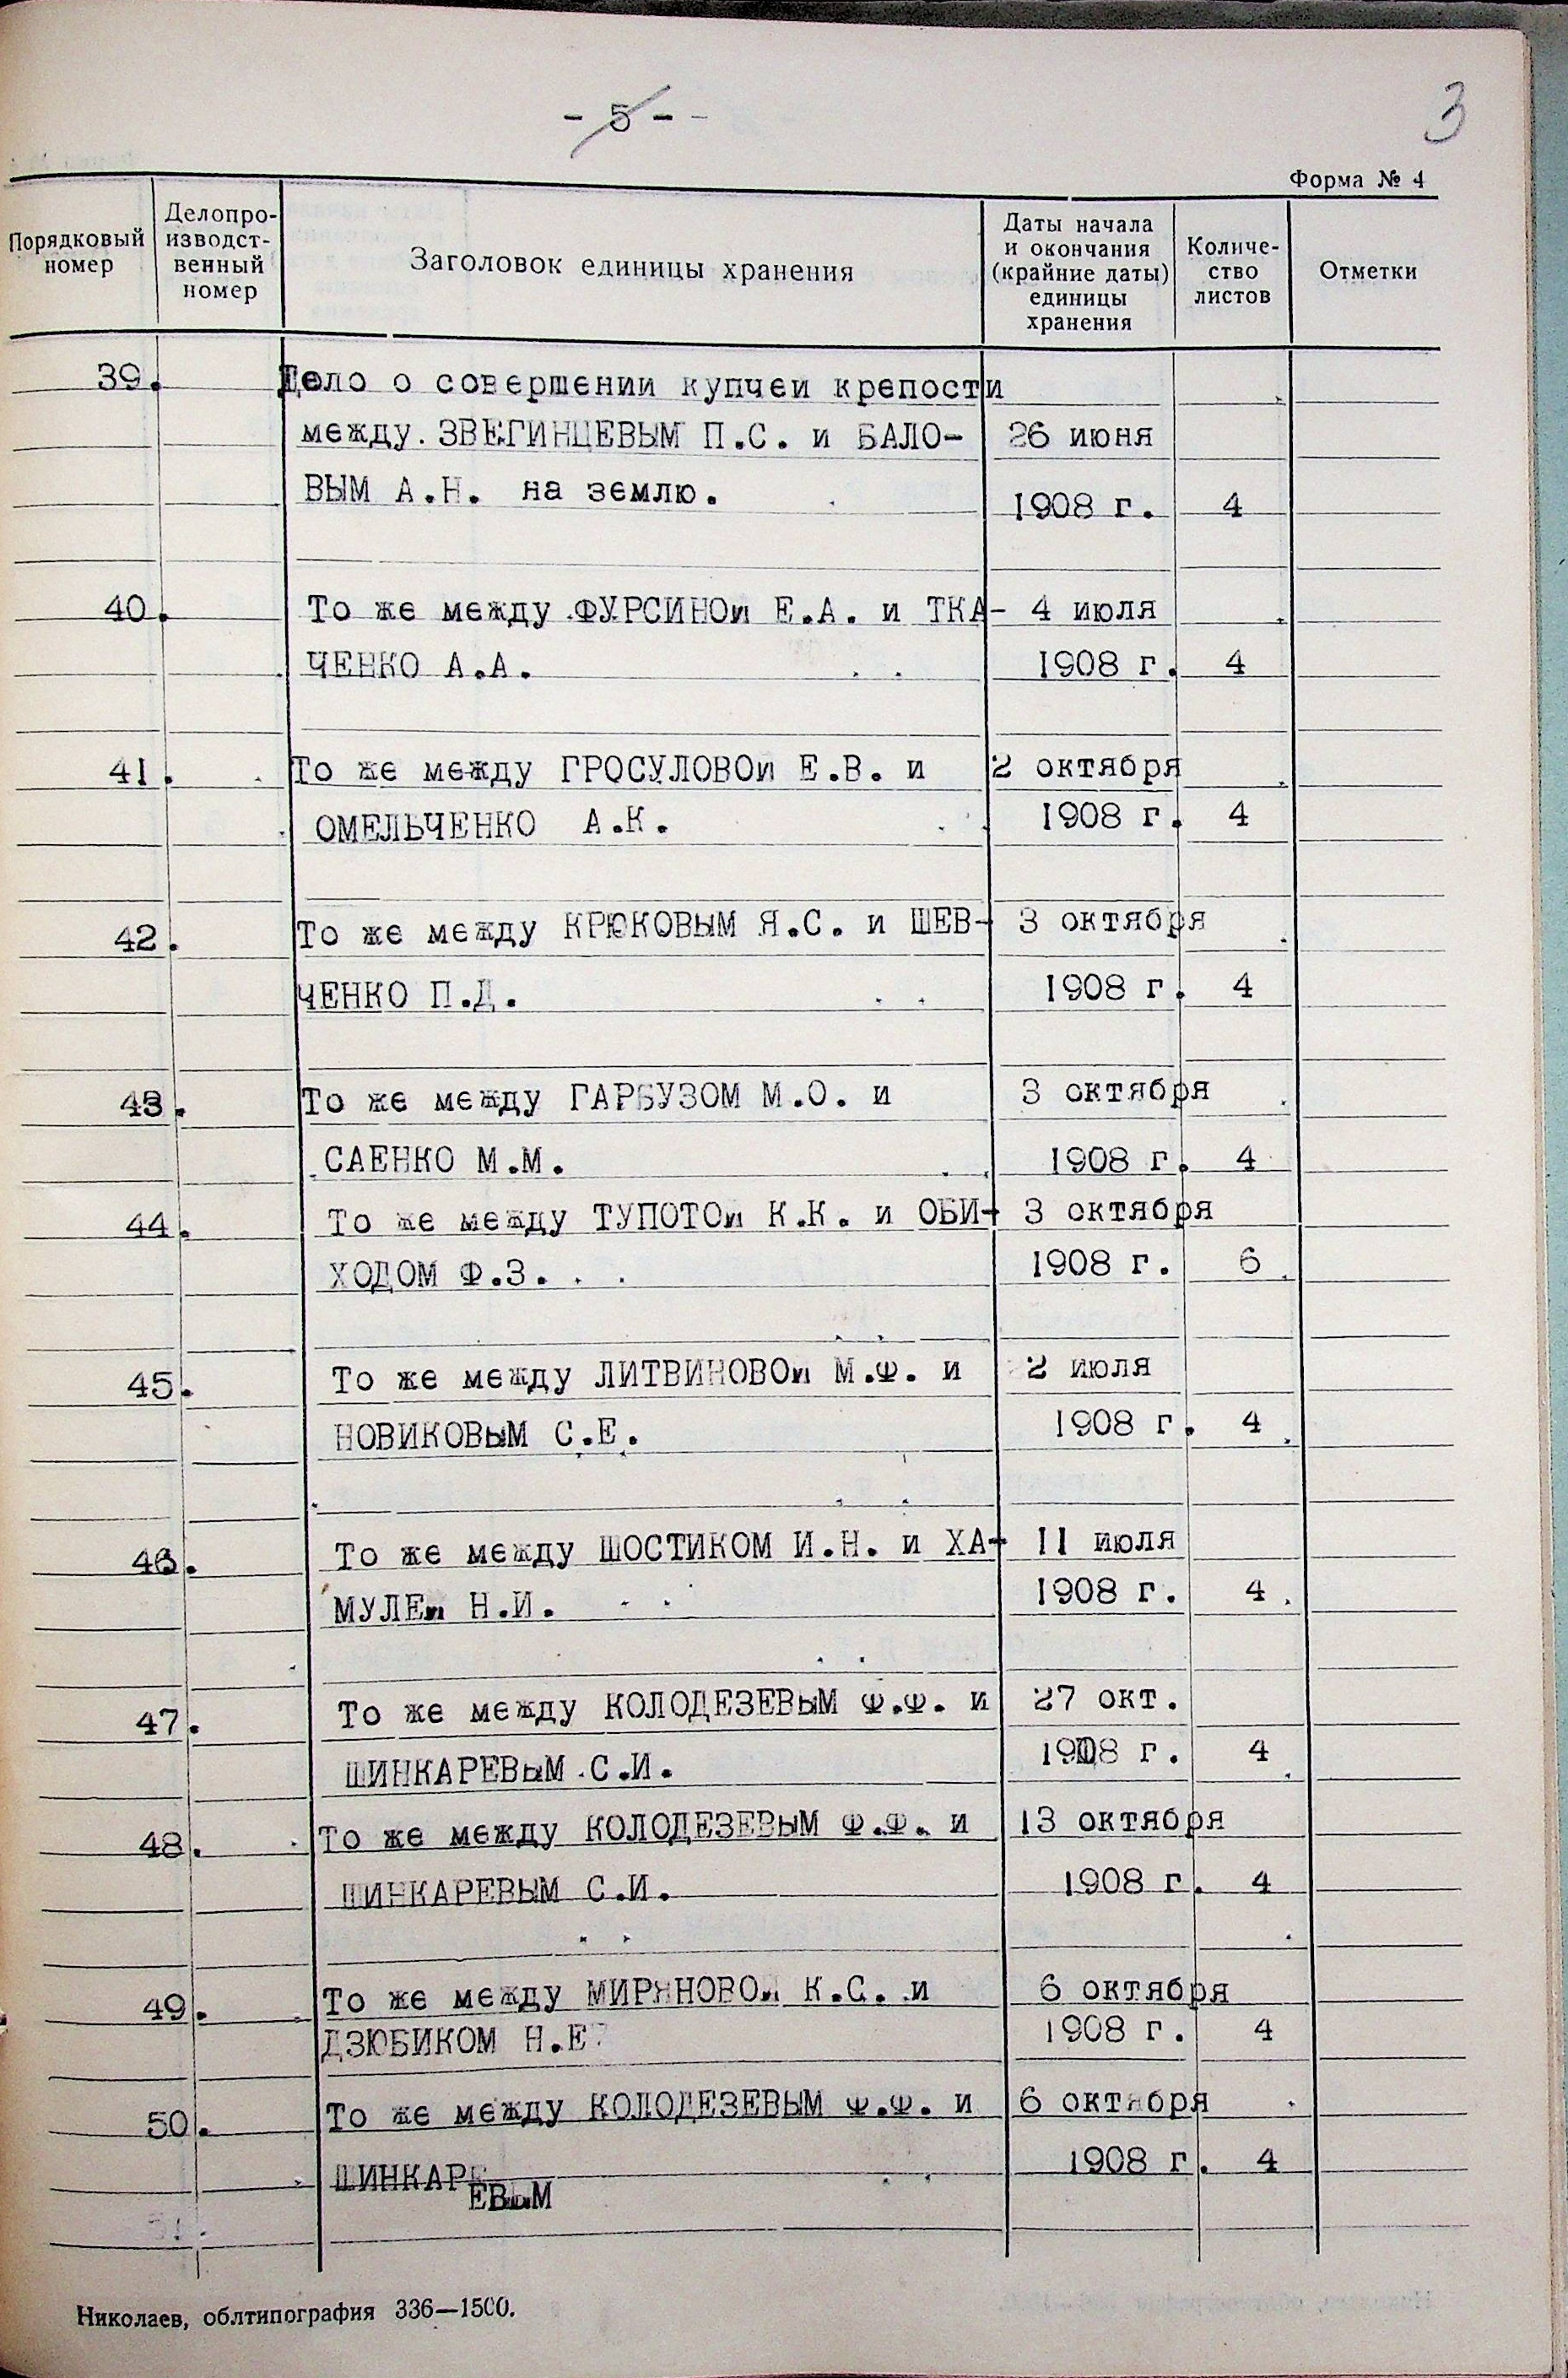 - 5 - -
3
Форма № 4
Порядковый номер
Делопро-
изводст-
венный
номер
Заголовок единицы хранения
Даты начала
и окончания
(крайние даты)
единицы
хранения
Количе-
ство
листов
Отметки
39. Дело о совершении купчеи крепости
между ЗВЕГИНЦЕВЫМ П.С. и БАЛО- 26 июня
ВЫМ А.Н. на землю. 1908 г. 4
40. То же между ФУРСИНОи Е.А. и ТКА- 4 июля
ЧЕНКО А.А. 1908 г. 4
41. То же между ГРОСУЛОВОи Е.В. и 2 октября
ОМЕЛЬЧЕНКО А.К. 1908 г. 4
42. То же между КРЮКОВЫМ Я.С. и ШЕВ- 3 октября
ЧЕНКО П.Д. 1908 г. 4
43. То же между ГАРБУЗОМ М.О. и 3 октября
САЕНКО М.М. 1908 г. 4
44. То же между ТУПОТОи К.К. и ОБИ- 3 октября
ХОДОМ Ф.З. 1908 г. 6
45. То же между ЛИТВИНОВОи М.Ф. и 2 июля
НОВИКОВыМ С.Е. 1908 г. 4
46. То же между ШОСТИКОМ И.Н. и ХА- 11 июля
МУЛЕи Н.И. 1908 г. 4
47. То же между КОЛОДЕЗЕВыМ Ф.Ф. и 27 окт.
ШИНКАРЕВыМ С.И. 1908 г. 4
48. То же между КОЛОДЕЗЕВыМ Ф.Ф. и 13 октября
ШИНКАРЕВЫМ С.И. 1908 г. 4
49. То же между МИРЯНОВОи К.С. и 6 октября
ДЗЮБИКОМ Н.Е. 1908 г. 4
50. То же между КОЛОДЕЗЕВЫМ Ф.Ф. и 6 октября
ШИНКАРЕ 1908 г. 4
ЕВыМ
51.
Николаев, облтипография 336—1500.